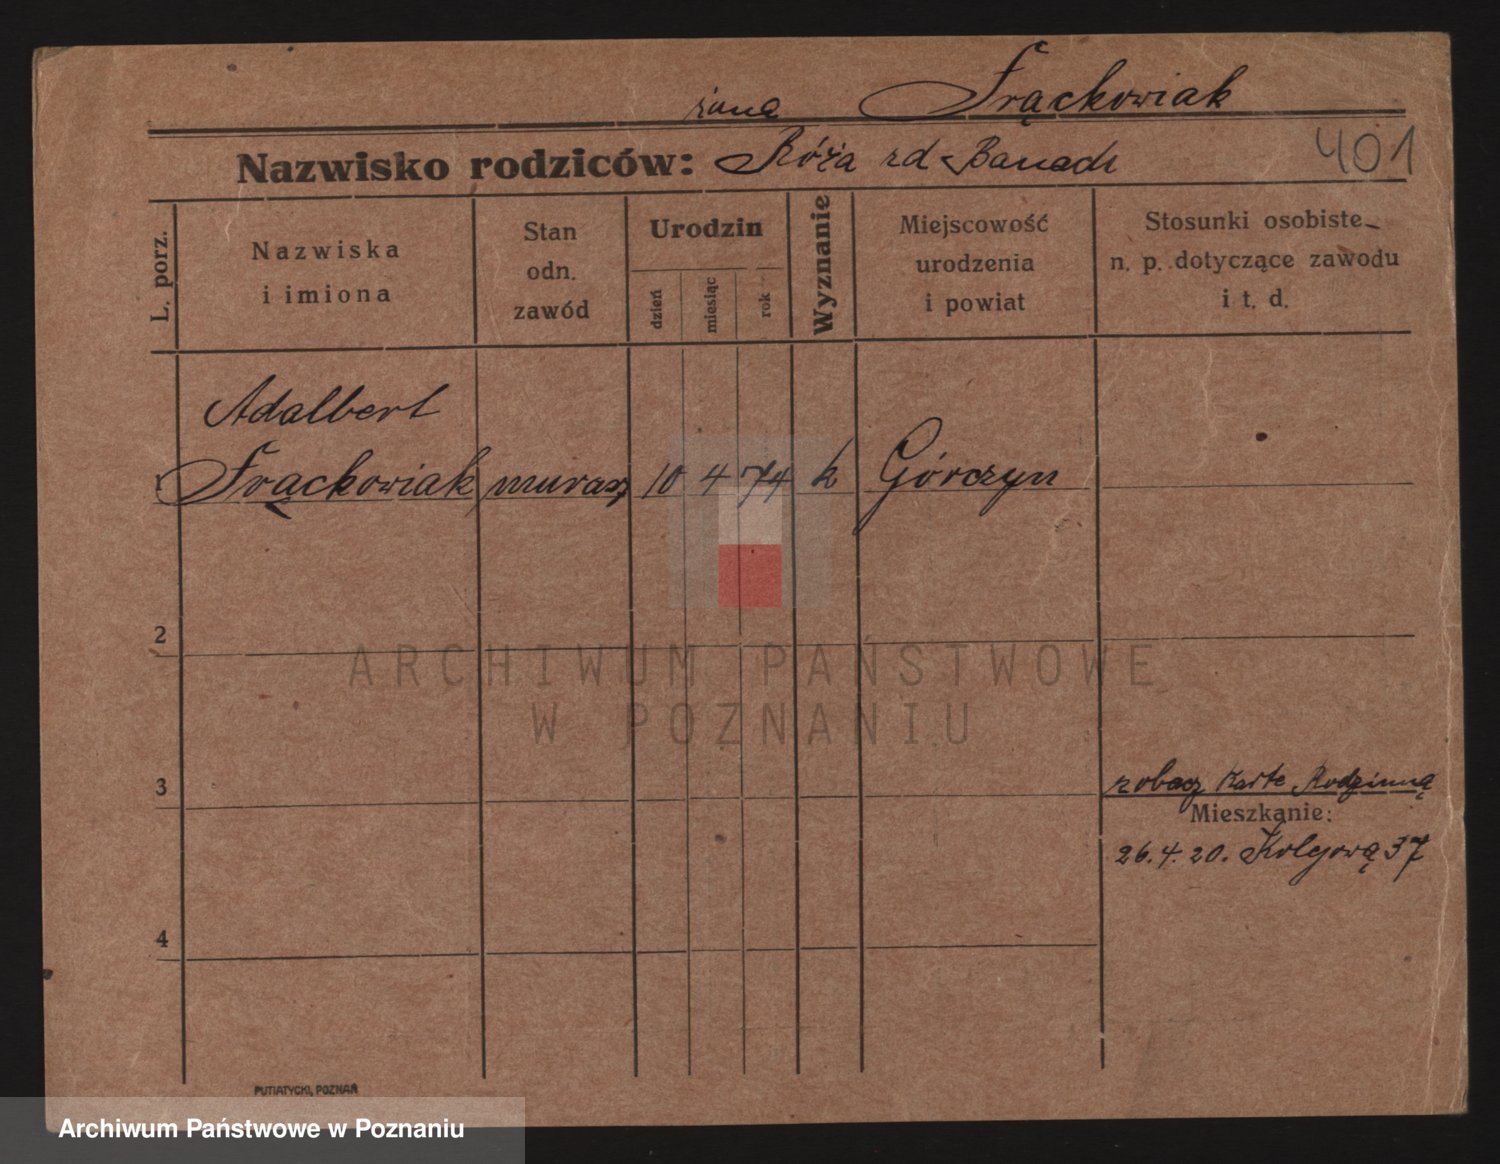 żona Frąckowiak
Nazwisko rodziców: Róża zd Banach
401
L. porz.
Nazwiska
i imiona
Stan
odn.
zawód
Urodzin
dzień
miesiąc
rok
Wyznanie
Miejscowość
urodzenia
i powiat
Stosunki osobiste
n. p. dotyczące zawodu
i t. d.
Adalbert
1 Frąckowiak murarz 10 4 74 k Górczyn
2
3
zobacz Karte Rodzinną
Mieszkanie:
26.4.20. Kolejową 37
4
PUTIATYCKI, POZNAŃ
ARCHIWUM PAŃSTWOWE
W POZNANIU
Archiwum Państwowe w Poznaniu